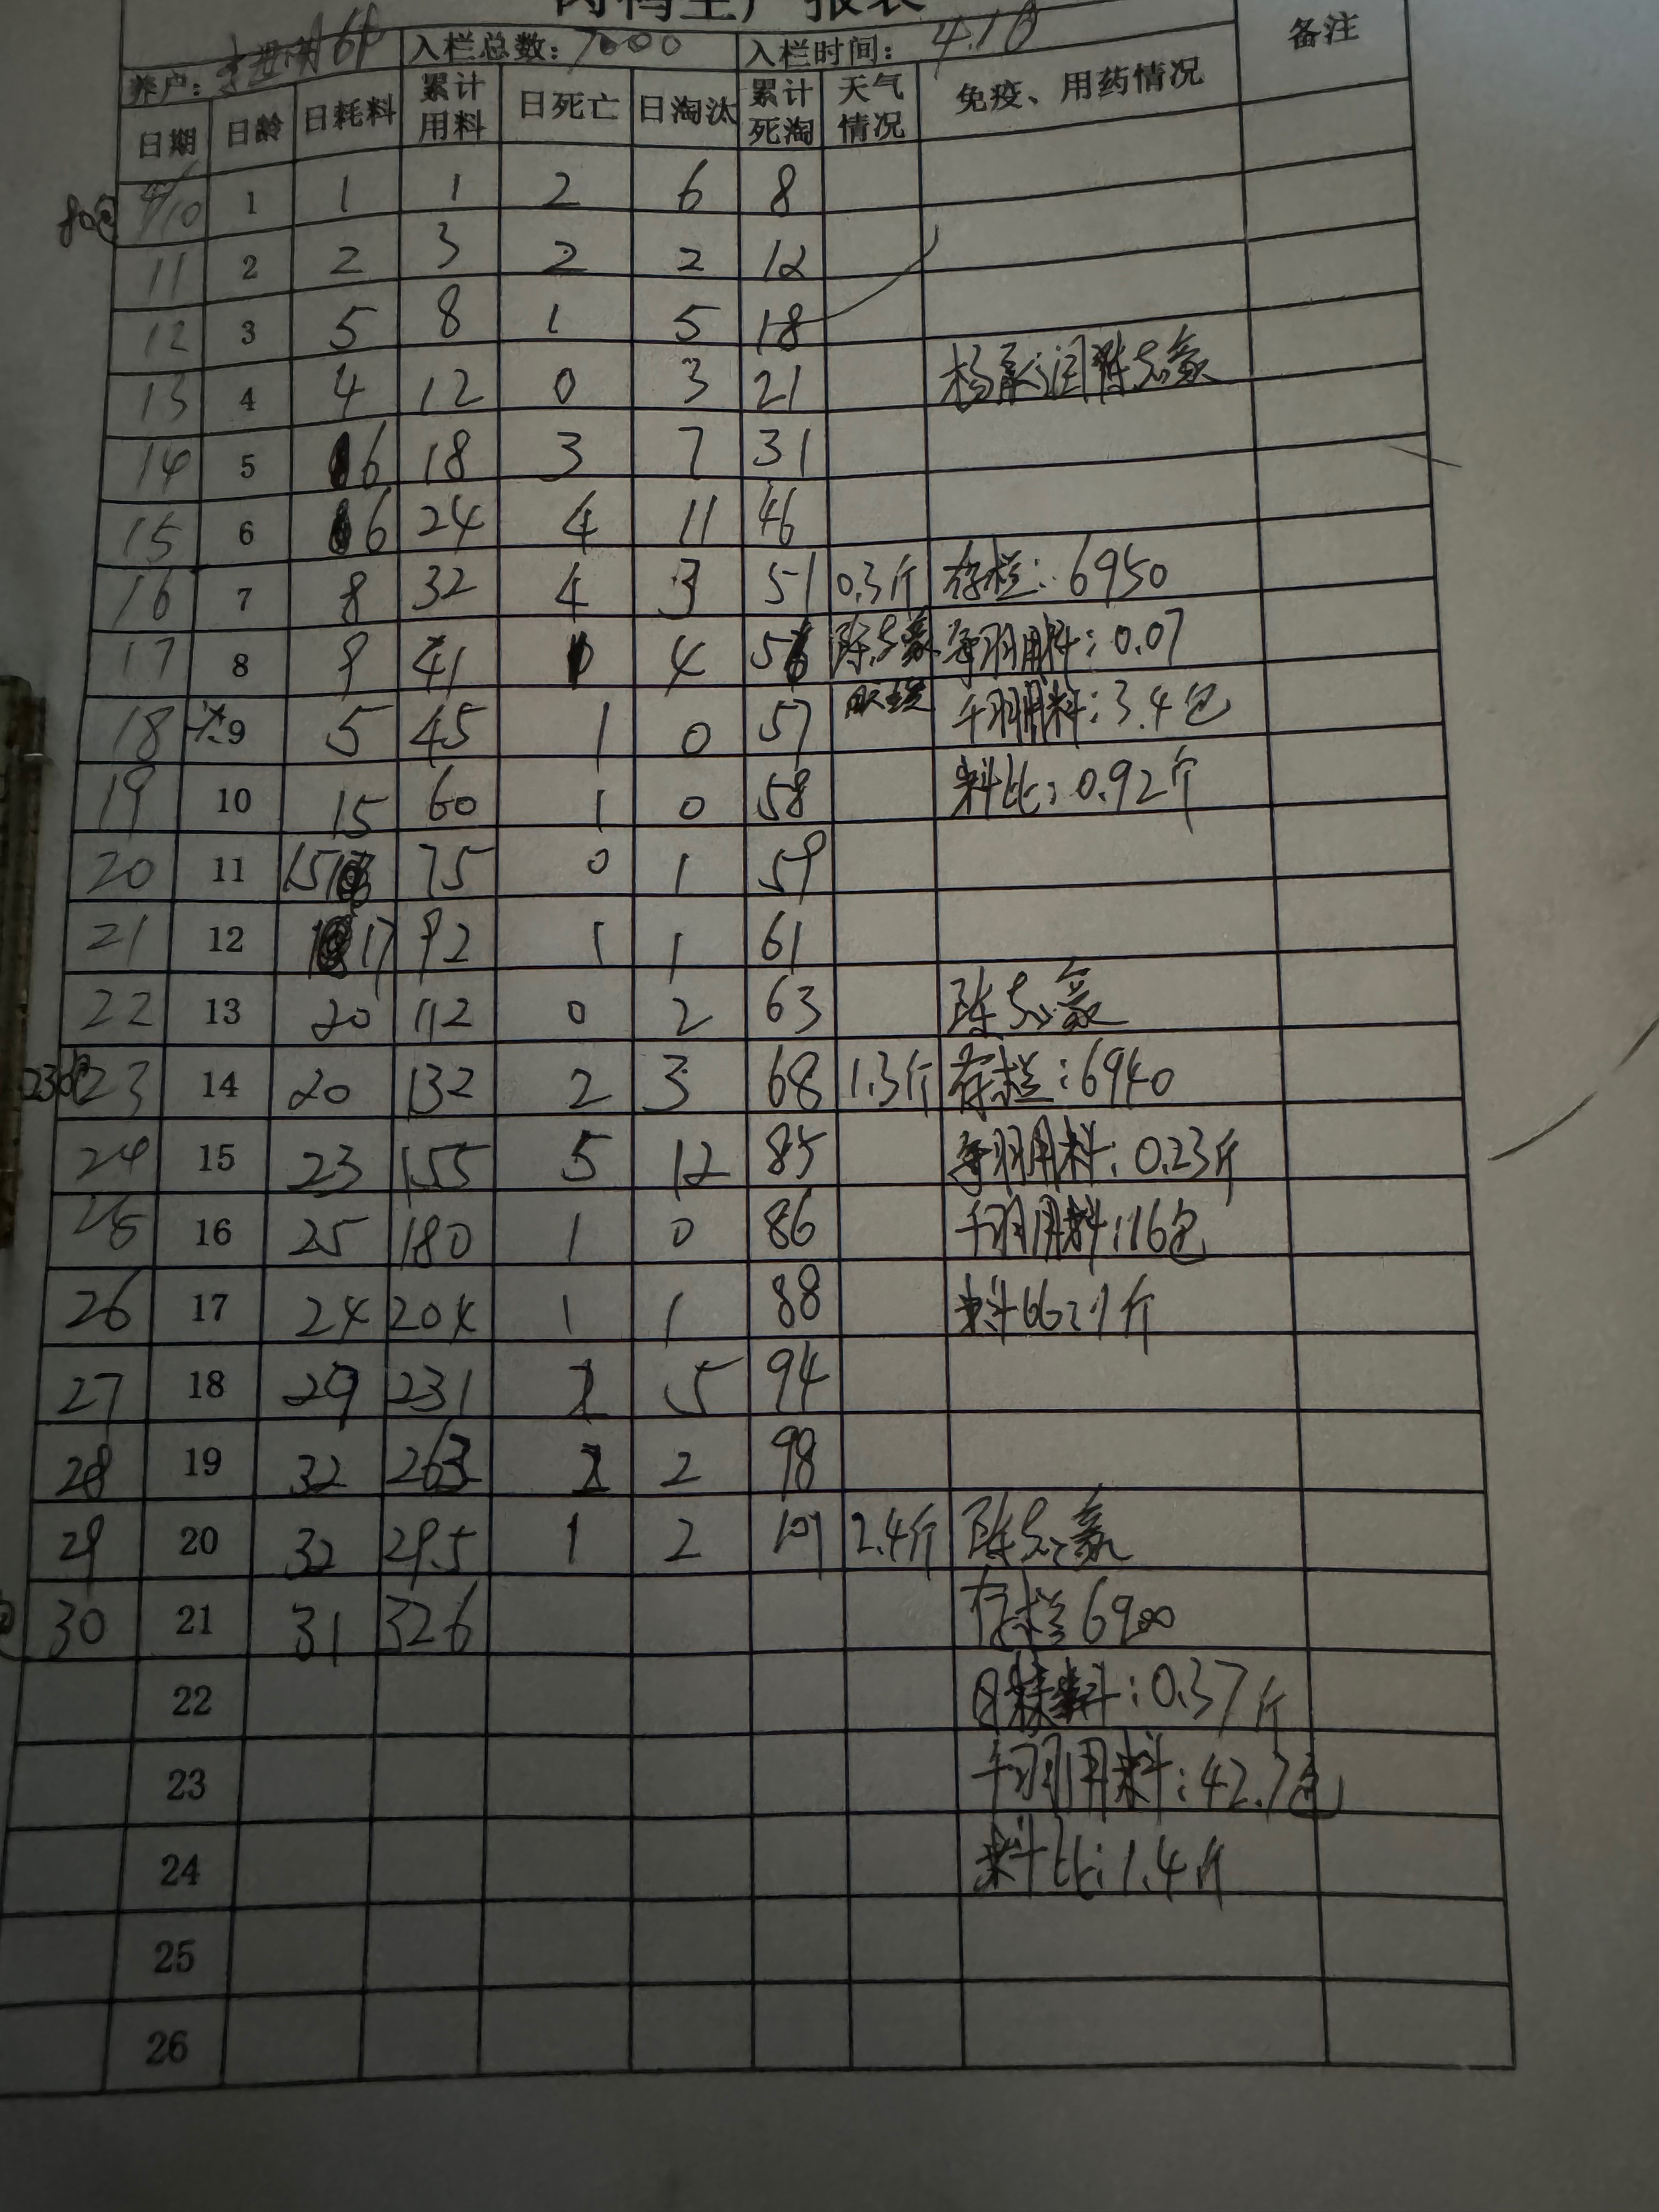 肉鸡生产报表
养户： 6P 入栏总数：7000 入栏时间：4.10 备注
日期 日龄 日耗料 累计用料 日死亡 日淘汰 累计死淘 天气情况 免疫、用药情况
4/10 1 1 1 2 6 8
11 2 2 3 2 2 12
12 3 5 8 1 5 18
13 4 4 12 0 3 21 陈志豪
14 5 6 18 3 7 31
15 6 6 24 4 11 46
16 7 8 32 4 3 51 0.3斤 存栏：6950
17 8 9 41 4 陈志豪 每羽用料：0.07
18 9 5 45 1 0 57 千羽用料：3.4包
19 10 15 60 1 0 58 料比：0.92斤
20 11 15 75 0 1 59
21 12 17 92 1 1 61
22 13 20 112 0 2 63 陈志豪
23 14 20 132 2 3 68 1.3斤 存栏：6940
24 15 23 155 5 12 85 每羽用料：0.23斤
25 16 25 180 1 0 86 千羽用料：16包
26 17 24 204 1 1 88 料比：1斤
27 18 231 5 94
28 19 32 263 2 98
29 20 32 295 1 2 101 2.4斤 陈志豪
30 21 31 326 存栏6900
22 日耗料：0.37斤
23 千羽用料：42.7包
24 料比：1.4斤
25
26